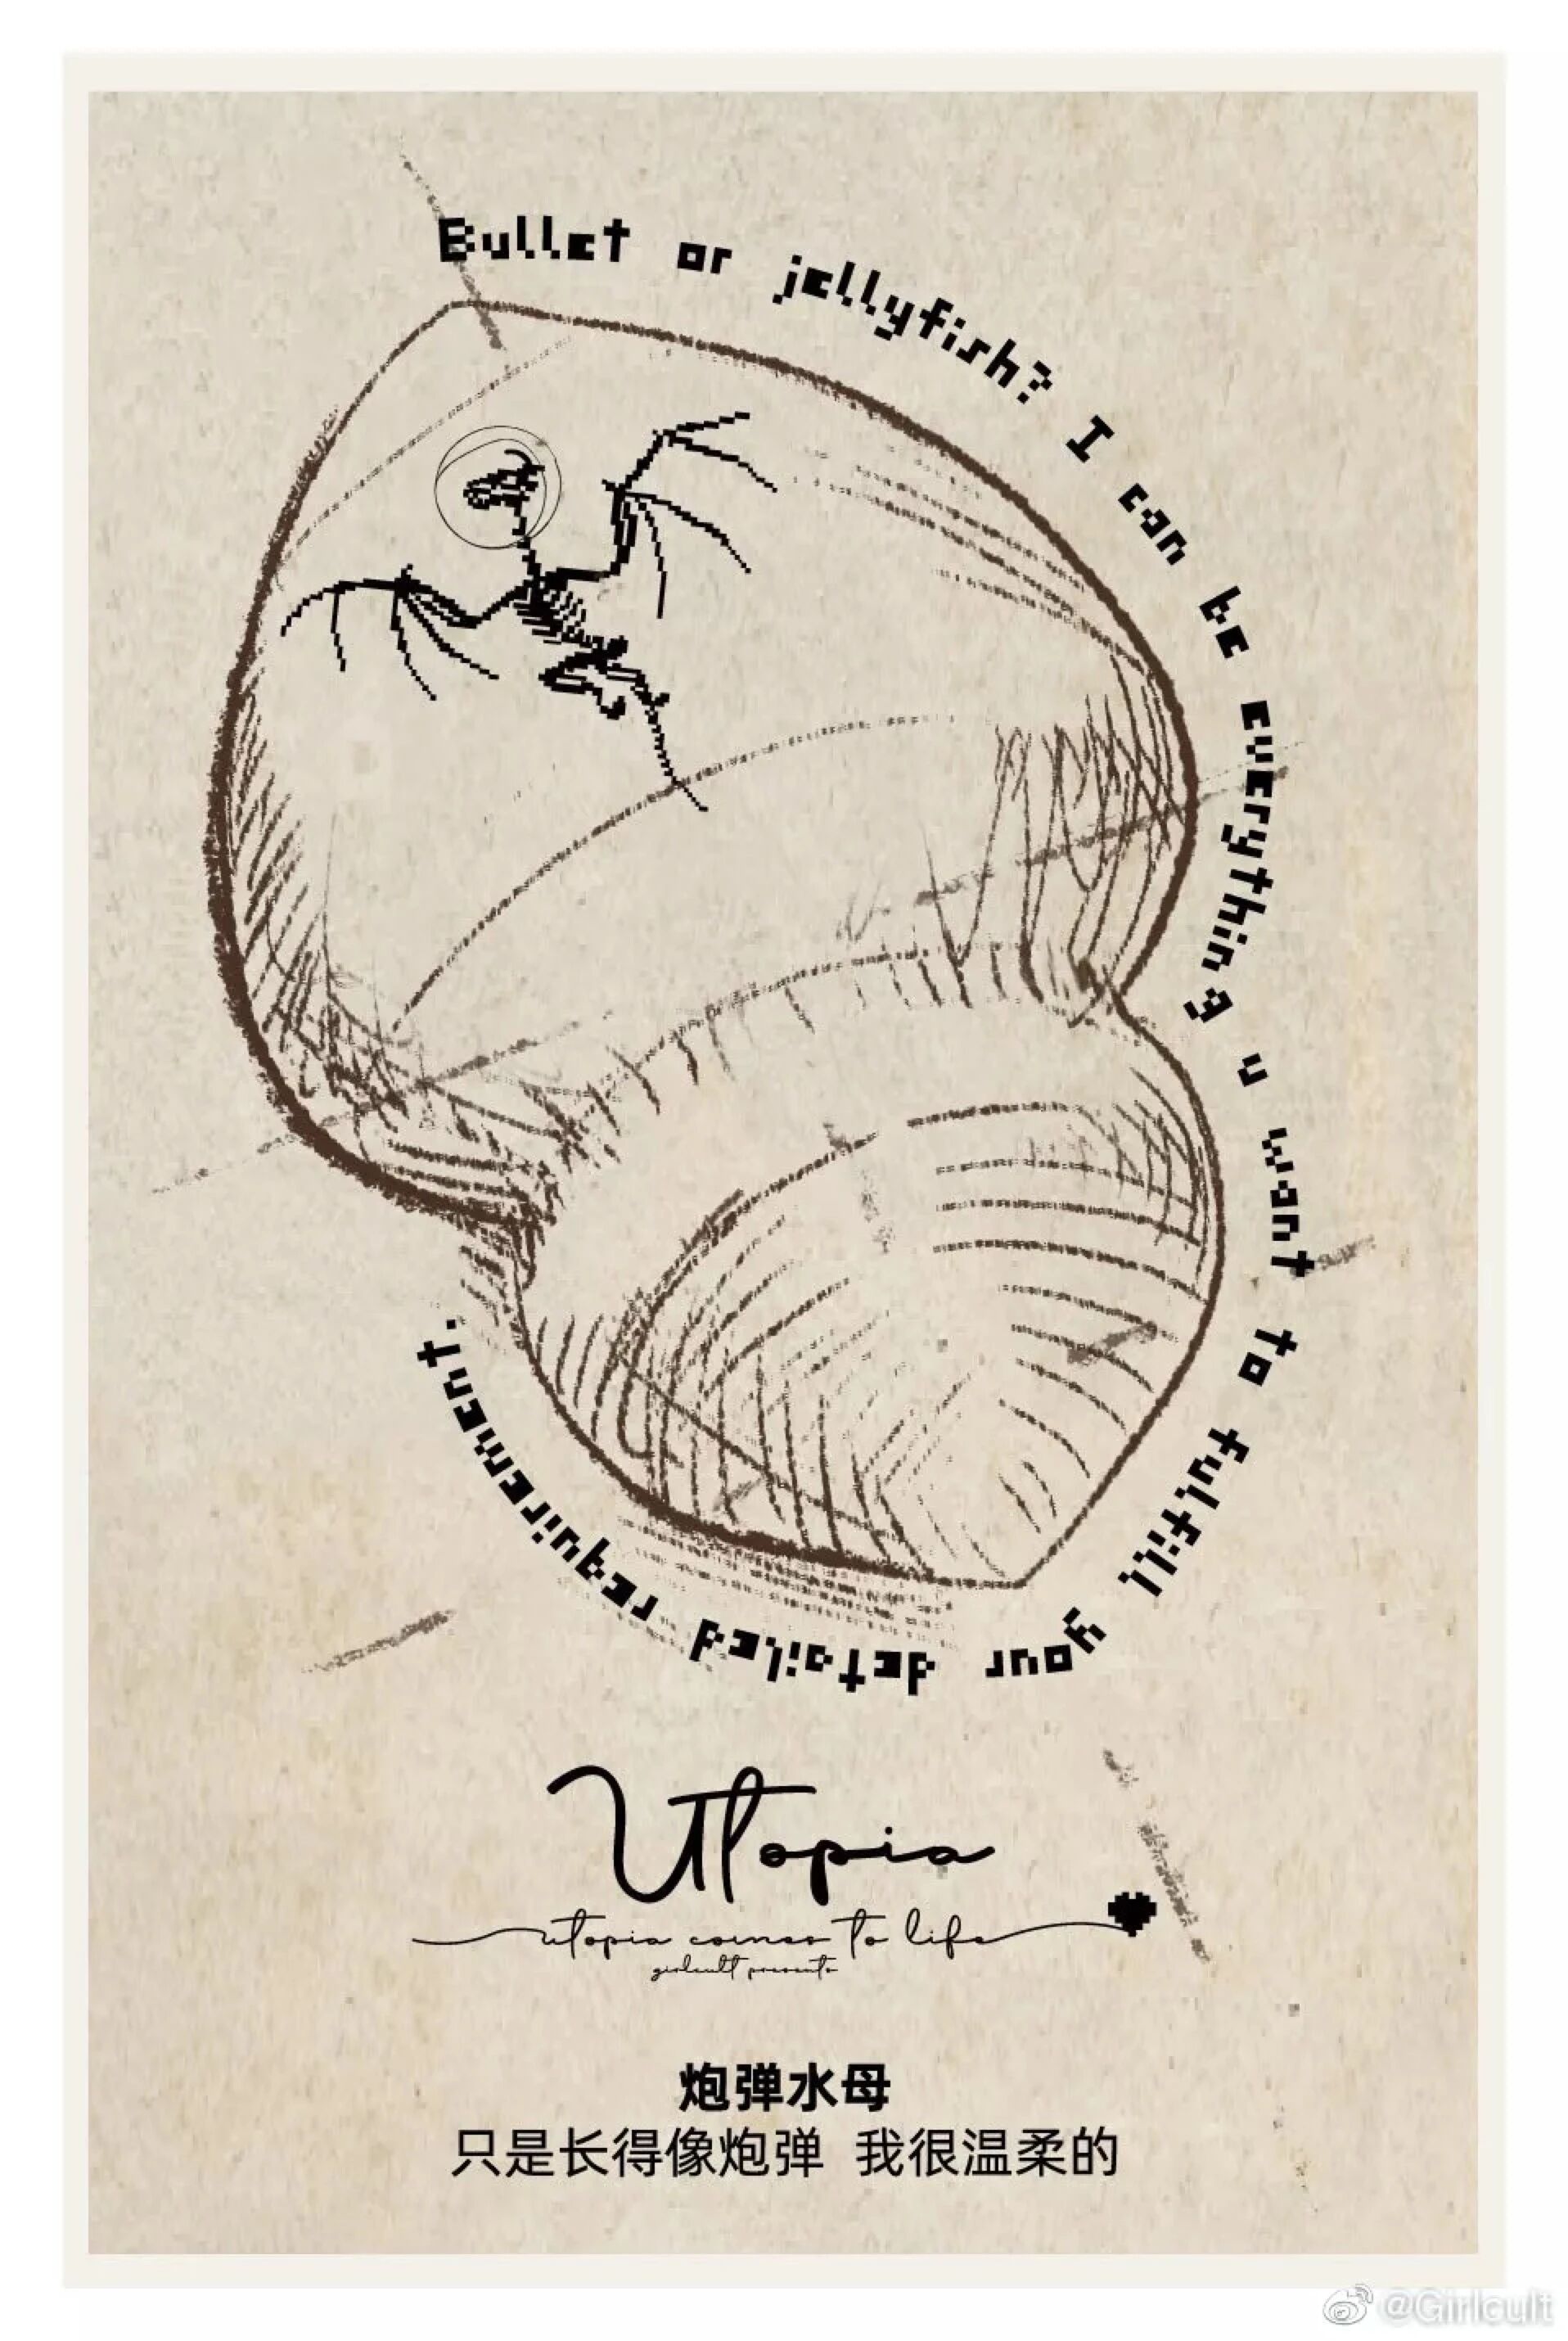 Bullet or jellyfish? I can be everything u want to fulfill your detailed requirement.
Utopia
utopia comes to life
girlcult presents
炮弹水母
只是长得像炮弹 我很温柔的
@Girlcult